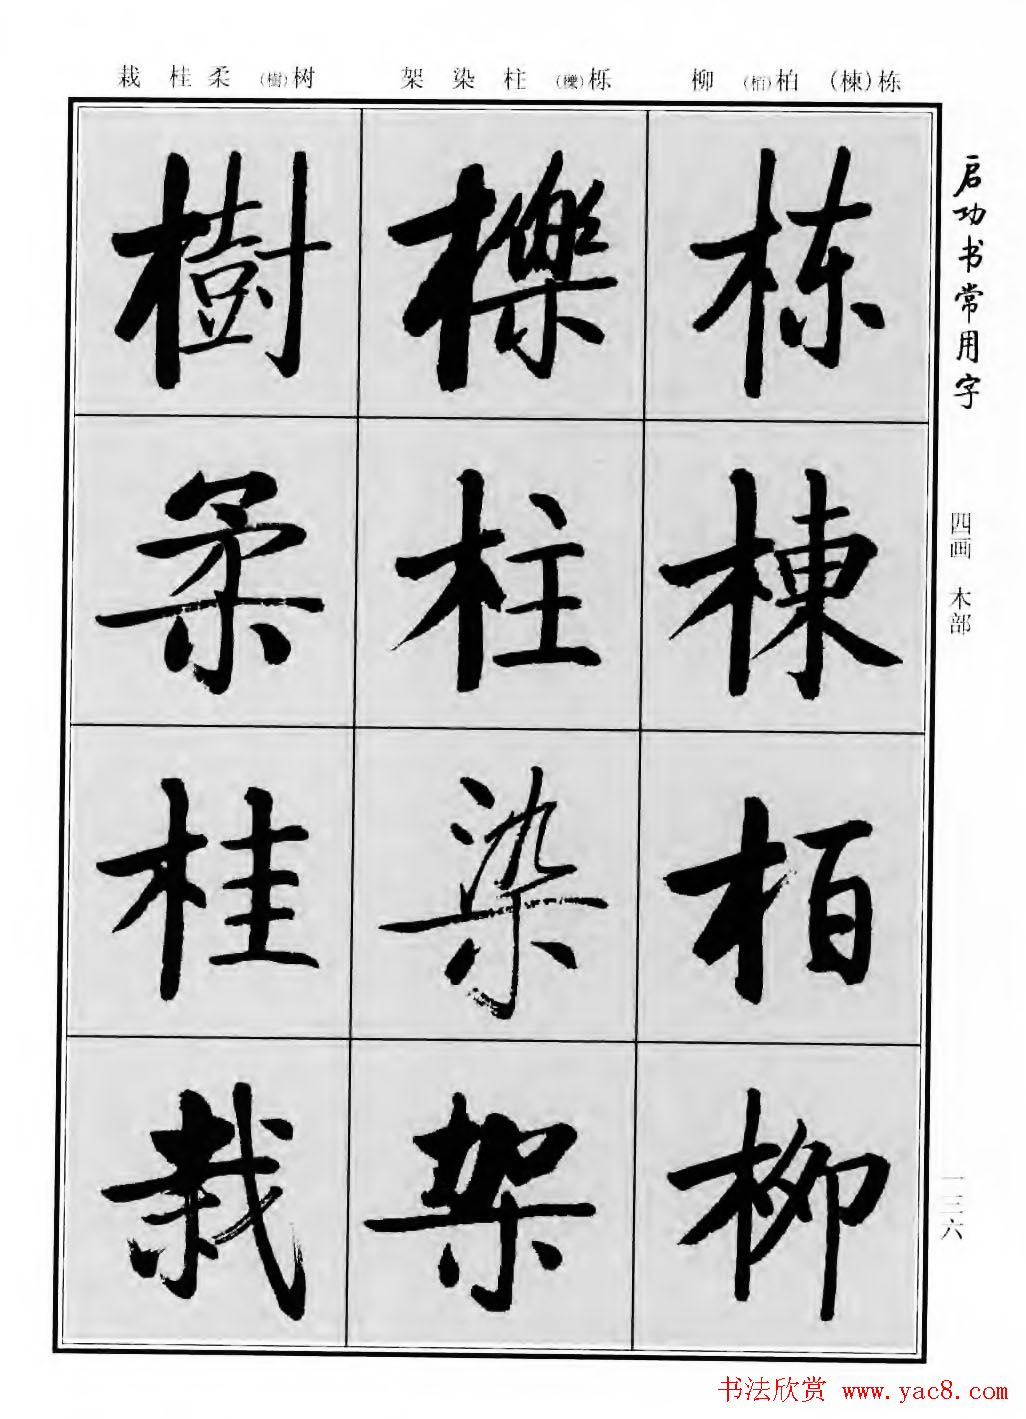 栽 桂 柔 (樹)树 架 染 柱 (櫟)栎 柳 (栢)柏 (棟)栋
启功书常用字
四画 木部
一三六
栋
棟
柏
柳
櫟
柱
染
架
樹
柔
桂
栽
书法欣赏 www.yac8.com